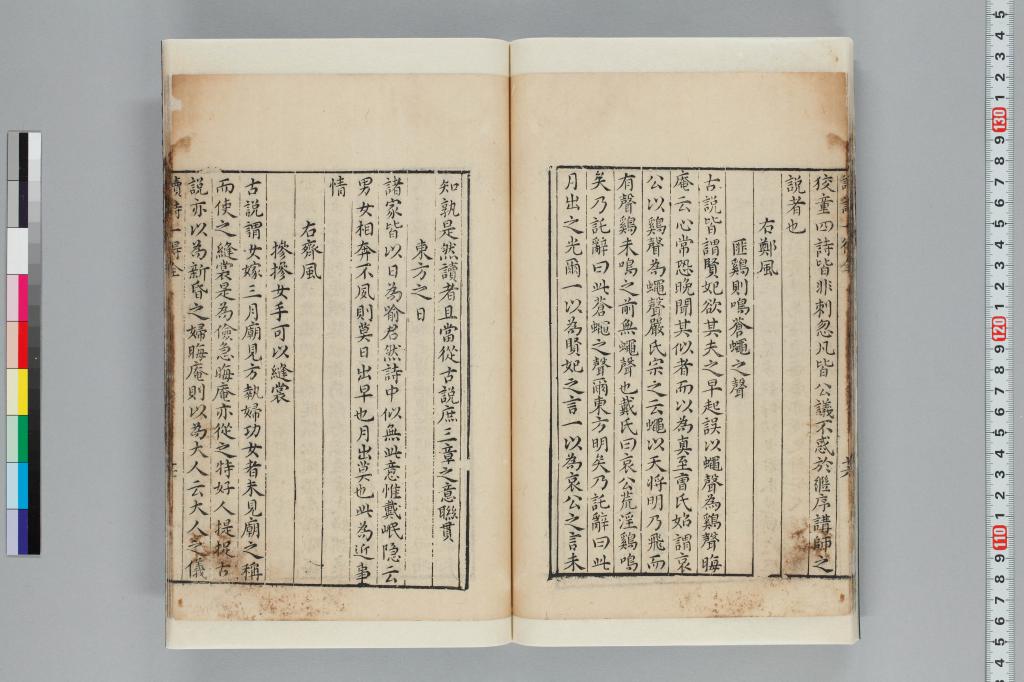 狡童四詩皆非刺忽凡皆公議不惑於繼序講師之
說者也
右鄭風
匪鷄則鳴蒼蠅之聲
古說皆謂賢妃欲其夫之早起誤以蠅聲為鷄聲晦
庵云心常恐晚聞其似者而以為真至曹氏始謂哀
公以鷄聲為蠅聲嚴氏宗之云蠅以天將明乃飛而
有聲鷄未鳴之前無蠅聲也戴氏曰哀公荒淫鷄鳴
矣乃託辭曰此蒼蠅之聲爾東方明矣乃託辭曰此
月出之光爾一以為賢妃之言一以為哀公之言未
知孰是然讀者且當從古說庶三章之意聯貫
東方之日
諸家皆以日為喻君然詩中似無此意惟戴岷隐云
男女相奔不夙則莫日出早也月出莫也此為近事
情
右齊風
摻摻女手可以縫裳
古說謂女嫁三月廟見方執婦功女者未見廟之稱
而使之縫裳是為儉急晦庵亦從之特好人提提古
說亦以為新昏之婦晦庵則以為大人云大人之儀
讀詩一得全
130
120
110